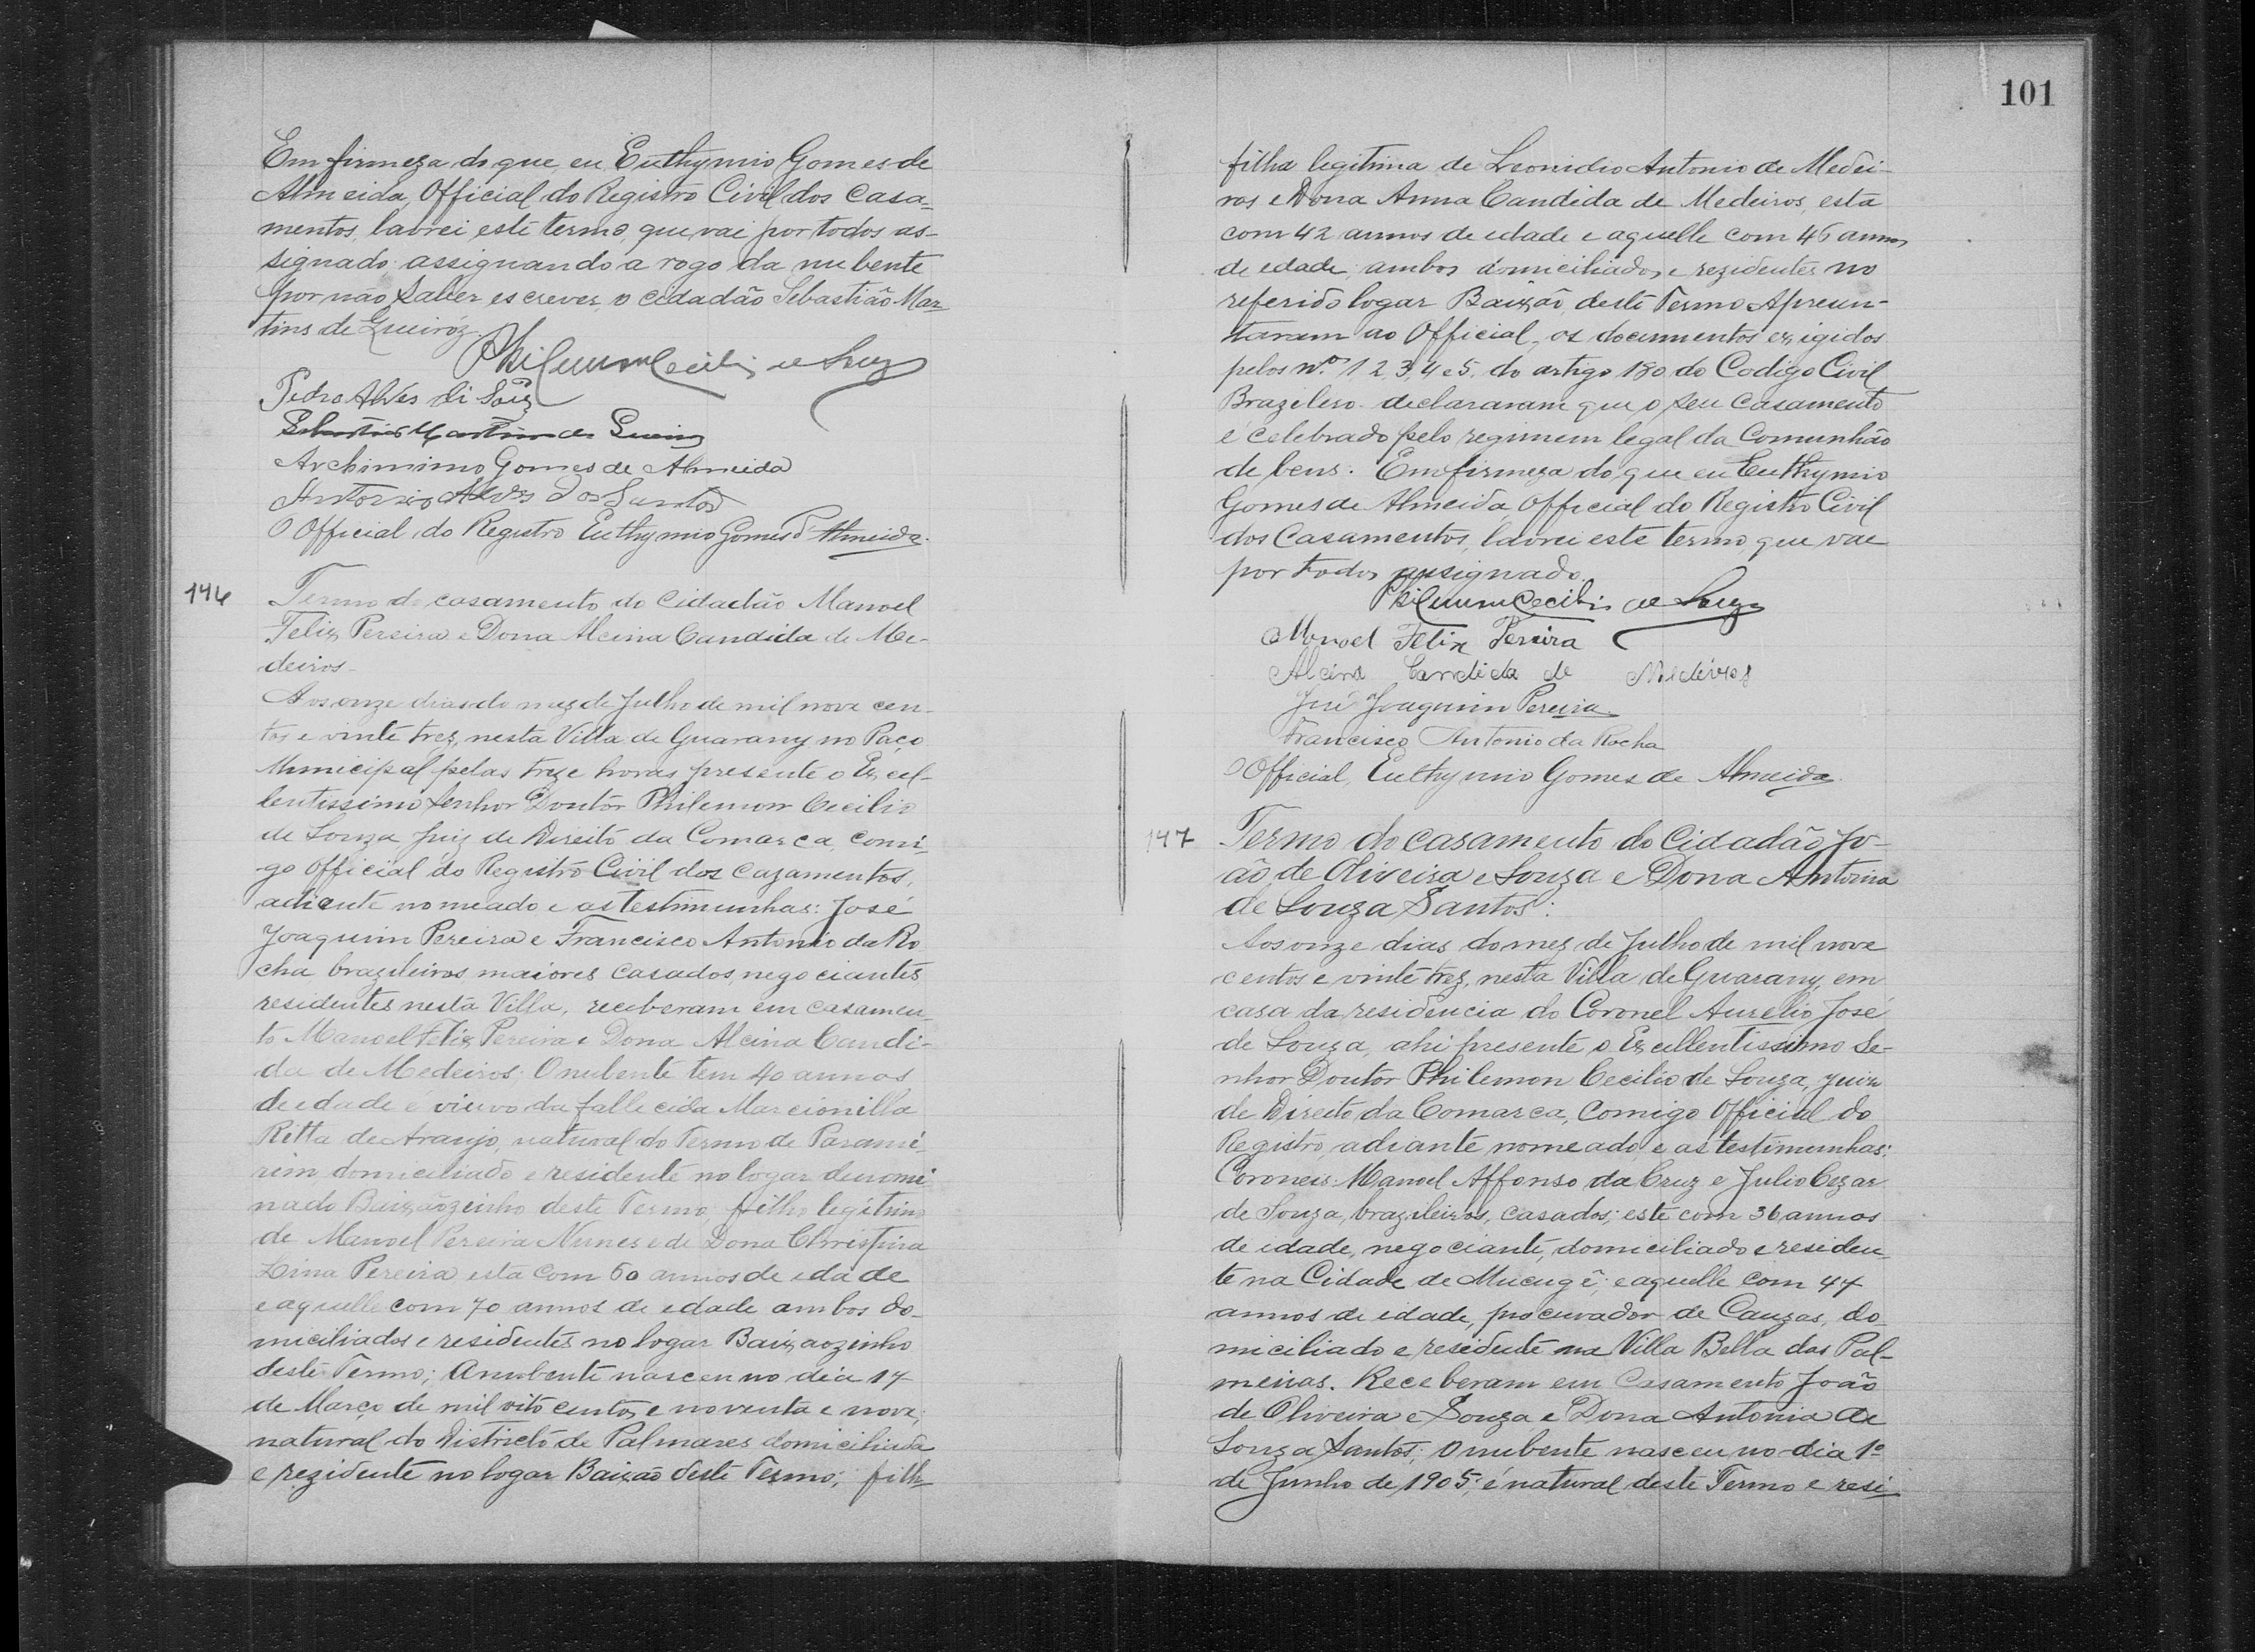 Em firmeza do que, eu Euthymio Gomes de
Almeida, Official do Registro Civil dos Casa-
mentos, lavrei este termo, que vai por todos as-
signado assignando a rogo da nubente
por não saber escrever, o cidadão Sebastião Mar-
tins de Queiróz.
Philemon Cecilio de Souza
Pedro Alves di Souz
Sebastião Martins de Queiroz
Archimimo Gomes de Almeida
Antonio Alves dos Santos
O Official do Registro Euthymio Gomes d'Almeida.
146
Termo do casamento do Cidadão Manoel
Felix Pereira e Dona Alcina Candida de Me-
deiros
Aos onze dias do mez de Julho de mil nove cen-
tos e vinte trez, nesta Villa de Guarany no Paço
Municipal pelas treze horas presente o Excel-
lentissimo Senhor Doutôr Philemon Cecilio
de Souza Juiz de Direito da Comarca, comi-
go Official do Registro Civil dos Cazamentos,
adiante nomeado e as testimunhas: José
Joaquim Pereira e Francisco Antonio da Ro
cha brazileiros maiores casados, negociantes
residentes nesta Villa, receberam em casamen-
to Manoel Felix Pereira e Dona Alcina Candi-
da de Medeiros; O nubente tem 40 annos
de edade é viuvo da fallecida Marcionilla
Ritta de Araujo, natural do Termo de Parami-
rim domiciliado e residente no logar denomi-
nado Baixãozinho deste Termo, filho legitimo
de Manoel Pereira Nunes e de Dona Christina
Lina Pereira esta com 60 annos de edade
e aquelle com 70 annos de edade ambos do-
miciliados e residentes no logar Baixaozinho
deste Termo; A nubente nasceu no dia 17
de Março de mil oito centos e noventa e nove;
natural do Districto de Palmares domiciliada
e rezidente no logar Baixão deste Termo; filh
101
filha legitima de Leonidio Antonio de Medei-
ros e Dona Anna Candida de Medeiros, esta
com 42 annos de edade e aquelle com 46 annos
de edade, ambos domiciliados e rezidentes no
referido logar Baixão, deste Termo Apresen-
taram ao Official, os documentos exigidos
pelos nos. 1, 2, 3, 4 e 5, do artigo 180 do Codigo Civil
Brazilero declararam que o seu casamento
é celebrado pelo regimem legal da Comunhão
de bens. Em firmeza do que eu Euthymio
Gomes de Almeida Official do Registro Civil
dos Casamentos, lavrei este termo, que vae
por todos assignado.
Philemon Cecilio de Souza
Manoel Felix Pereira
Alcina Candida de Medeiros
José Joaquim Pereira
Francisco Antonio da Rocha
O Official, Euthymio Gomes de Almeida.
147
Termo do casamento do Cidadão Jo-
ão de Oliveira e Souza e Dona Antonia
de Souza Santos:
Aos onze dias do mez de Julho de mil nove
centos e vinte trez, nesta Villa de Guarany, em
casa da residencia do Coronel Aurelio José
de Souza, ahi presente o Excellentissimo Se-
nhor Doutor Philemon Cecilio de Souza, Juiz
de Direito da Comarca, Comigo Official do
Registro, adiante nomeado, e as testimunhas:
Coroneis: Manoel Affonso da Cruz e Julio Cezar
de Souza, brazileiros, casados; este com 36 annos
de idade, negociante, domiciliado e residen-
te na Cidade de Mucugê; e aquelle com 47
annos de edade, procurador de Cauzas, do-
miciliado e residente na Villa Bella das Pal-
meiras. Receberam em Casamento João
de Oliveira e Souza e Dona Antonia de
Souza Santos; O nubente nasceu no dia 1º
de Junho de 1905; é natural deste Termo e resi-